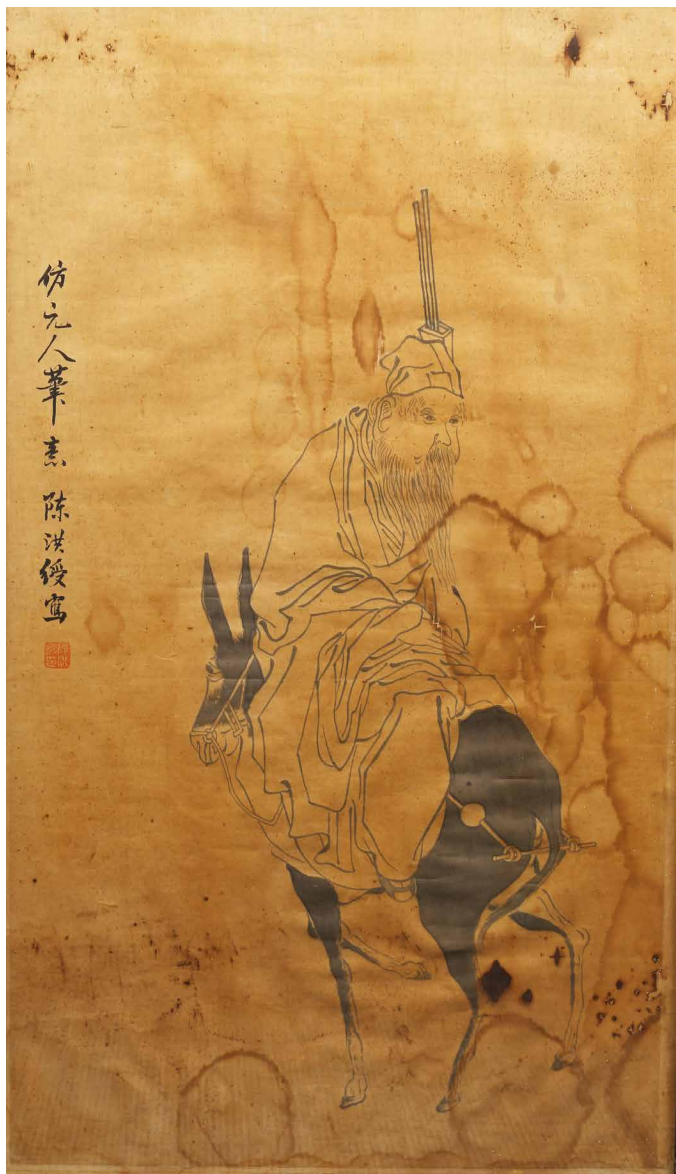 仿元人筆意 陳洪綬寫